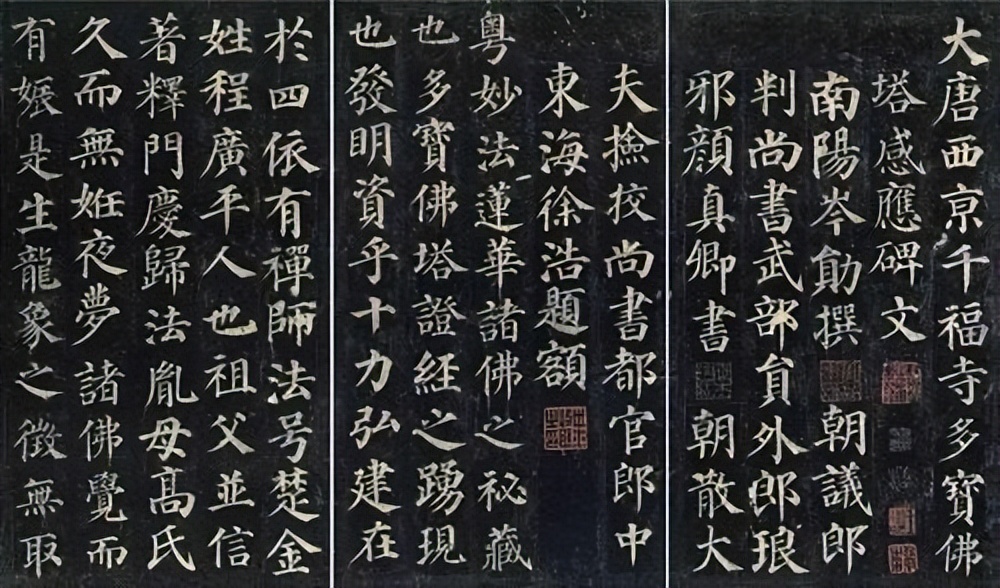 大唐西亰千福寺多寶佛
塔感應碑文
南陽岑勛撰 朝議郎
判尚書武部貟外郎琅
邪顏真卿書 朝散大
夫撿挍尚書都官郎中
東海徐浩題額
粵妙法蓮華諸佛之秘藏
也多寶佛塔證経之踴現
也發明資乎十力弘建在
於四依有禪師法号楚金
姓程廣平人也祖父並信
著釋門慶歸法胤母髙氏
久而無姙夜夢諸佛覺而
有娠是生龍象之徵無取